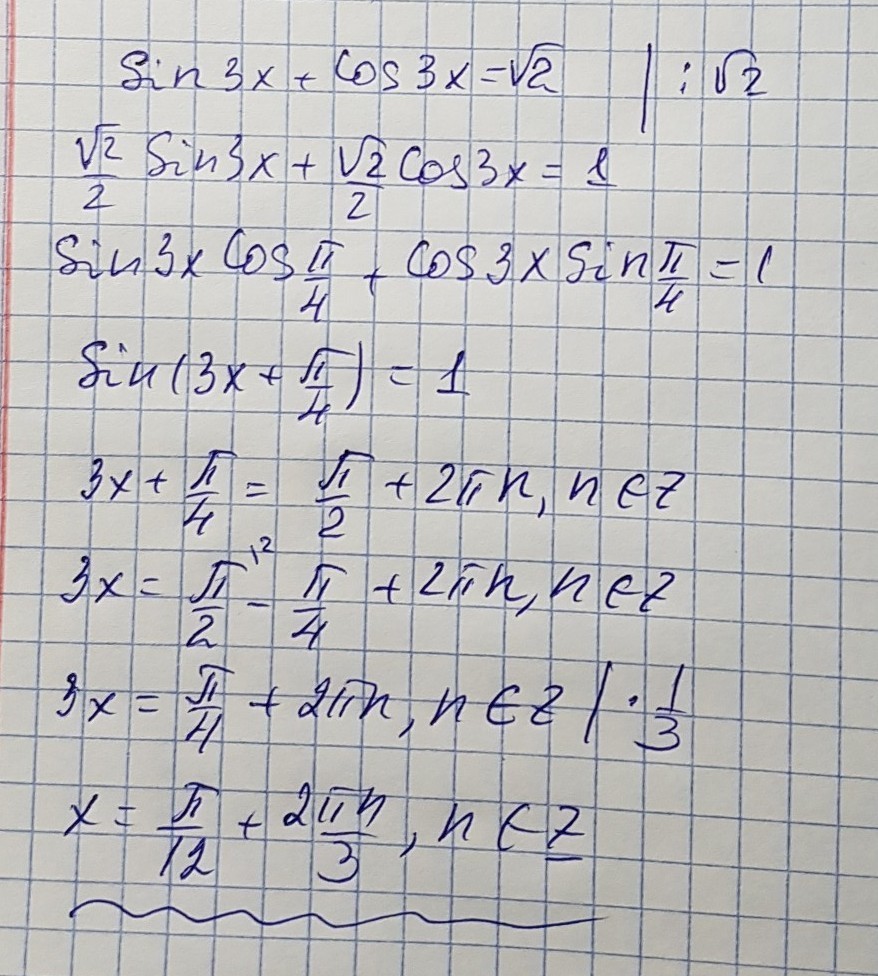 Sin 3x + Cos 3x = √2 | : √2
√2/2 Sin 3x + √2/2 Cos 3x = 1
Sin 3x Cos π/4 + Cos 3x Sin π/4 = 1
Sin (3x + π/4) = 1
3x + π/4 = π/2 + 2πn, n ∈ Z
3x = π/2 \² - π/4 + 2πn, n ∈ Z
3x = π/4 + 2πn, n ∈ Z | · 1/3
x = π/12 + 2πn/3, n ∈ Z